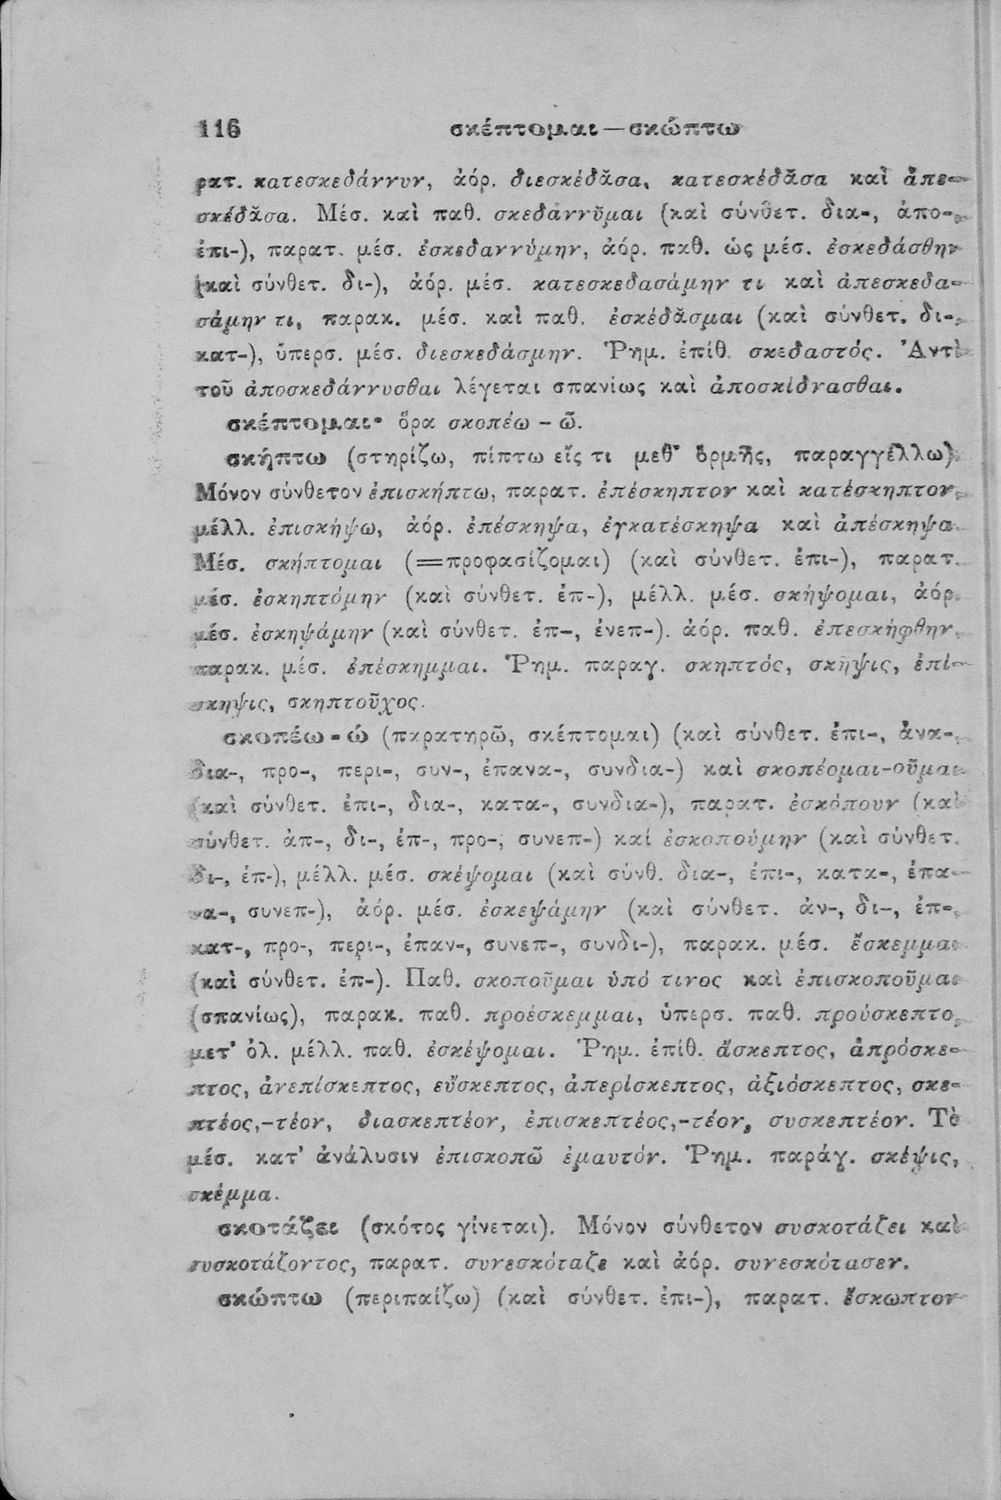 116 σκέπτομαι — σκώπτω
ρατ. κατεσκεδάννυν, ἀόρ. διεσκέδᾰσα, κατεσκέδᾰσα καὶ ἀπε-
σκέδᾰσα. Μέσ. καὶ παθ. σκεδάννῠμαι (καὶ σύνθετ. δια-, ἀπο-,
ἐπι-), παρατ. μέσ. ἐσκεδαννύμην, ἀόρ. παθ. ὡς μέσ. ἐσκεδάσθην
(καὶ σύνθετ. δι-), ἀόρ. μέσ. κατεσκεδασάμην τι καὶ ἀπεσκεδα-
σάμην τι, παρακ. μέσ. καὶ παθ. ἐσκέδᾰσμαι (καὶ σύνθετ. δι-,
κατ-), ὑπερσ. μέσ. διεσκεδάσμην. Ῥημ. ἐπίθ. σκεδαστός. Ἀντὶ
τοῦ ἀποσκεδάννυσθαι λέγεται σπανίως καὶ ἀποσκίδνασθαι.
σκέπτομαι· ὅρα σκοπέω - ῶ.
σκήπτω (στηρίζω, πίπτω εἴς τι μεθ' ὁρμῆς, παραγγέλλω).
Μόνον σύνθετον ἐπισκήπτω, παρατ. ἐπέσκηπτον καὶ κατέσκηπτον,
μέλλ. ἐπισκήψω, ἀόρ. ἐπέσκηψα, ἐγκατέσκηψα καὶ ἀπέσκηψα.
Μέσ. σκήπτομαι (=προφασίζομαι) (καὶ σύνθετ. ἐπι-), παρατ.
μέσ. ἐσκηπτόμην (καὶ σύνθετ. ἐπ-), μέλλ. μέσ. σκήψομαι, ἀόρ.
μέσ. ἐσκηψάμην (καὶ σύνθετ. ἐπ-, ἐνεπ-). ἀόρ. παθ. ἐπεσκήφθην,
παρακ. μέσ. ἐπέσκημμαι. Ῥημ. παραγ. σκηπτός, σκῆψις, ἐπί-
σκηψις, σκηπτοῦχος.
σκοπέω - ῶ (παρατηρῶ, σκέπτομαι) (καὶ σύνθετ. ἐπι-, ἀνα-,
δια-, προ-, περι-, συν-, ἐπανα-, συνδια-) καὶ σκοπέομαι-οῦμαι
(καὶ σύνθετ. ἐπι-, δια-, κατα-, συνδια-), παρατ. ἐσκόπουν (καὶ
σύνθετ. ἀπ-, δι-, ἐπ-, προ-, συνεπ-) καί ἐσκοπούμην (καὶ σύνθετ.
δι-, ἐπ-), μέλλ. μέσ. σκέψομαι (καὶ σύνθ. δια-, ἐπι-, κατα-, ἐπα-
να-, συνεπ-), ἀόρ. μέσ. ἐσκεψάμην (καὶ σύνθετ. ἀν-, δι-, ἐπ-,
κατ-, προ-, περι-, ἐπαν-, συνεπ-, συνδι-), παρακ. μέσ. ἔσκεμμαι
(καὶ σύνθετ. ἐπ-). Παθ. σκοποῦμαι ὑπό τινος καὶ ἐπισκοποῦμαι
(σπανίως), παρακ. παθ. προέσκεμμαι, ὑπερσ. παθ. προὔσκεπτο,
μετ' ὀλ. μέλλ. παθ. ἐσκέψομαι. Ῥημ. ἐπίθ. ἄσκεπτος, ἀπρόσκε-
πτος, ἀνεπίσκεπτος, εὔσκεπτος, ἀπερίσκεπτος, ἀξιόσκεπτος, σκε-
πτέος,-τέον, διασκεπτέον, ἐπισκεπτέος,-τέον, συσκεπτέον. Τὸ
μέσ. κατ' ἀνάλυσιν ἐπισκοπῶ ἐμαυτόν. Ῥημ. παράγ. σκέψις,
σκέμμα.
σκοτάζει (σκότος γίνεται). Μόνον σύνθετον συσκοτάζει καὶ
συσκοτάζοντος, παρατ. συνεσκόταζε καὶ ἀόρ. συνεσκότασεν.
σκώπτω (περιπαίζω) (καὶ σύνθετ. ἐπι-), παρατ. ἔσκωπτον